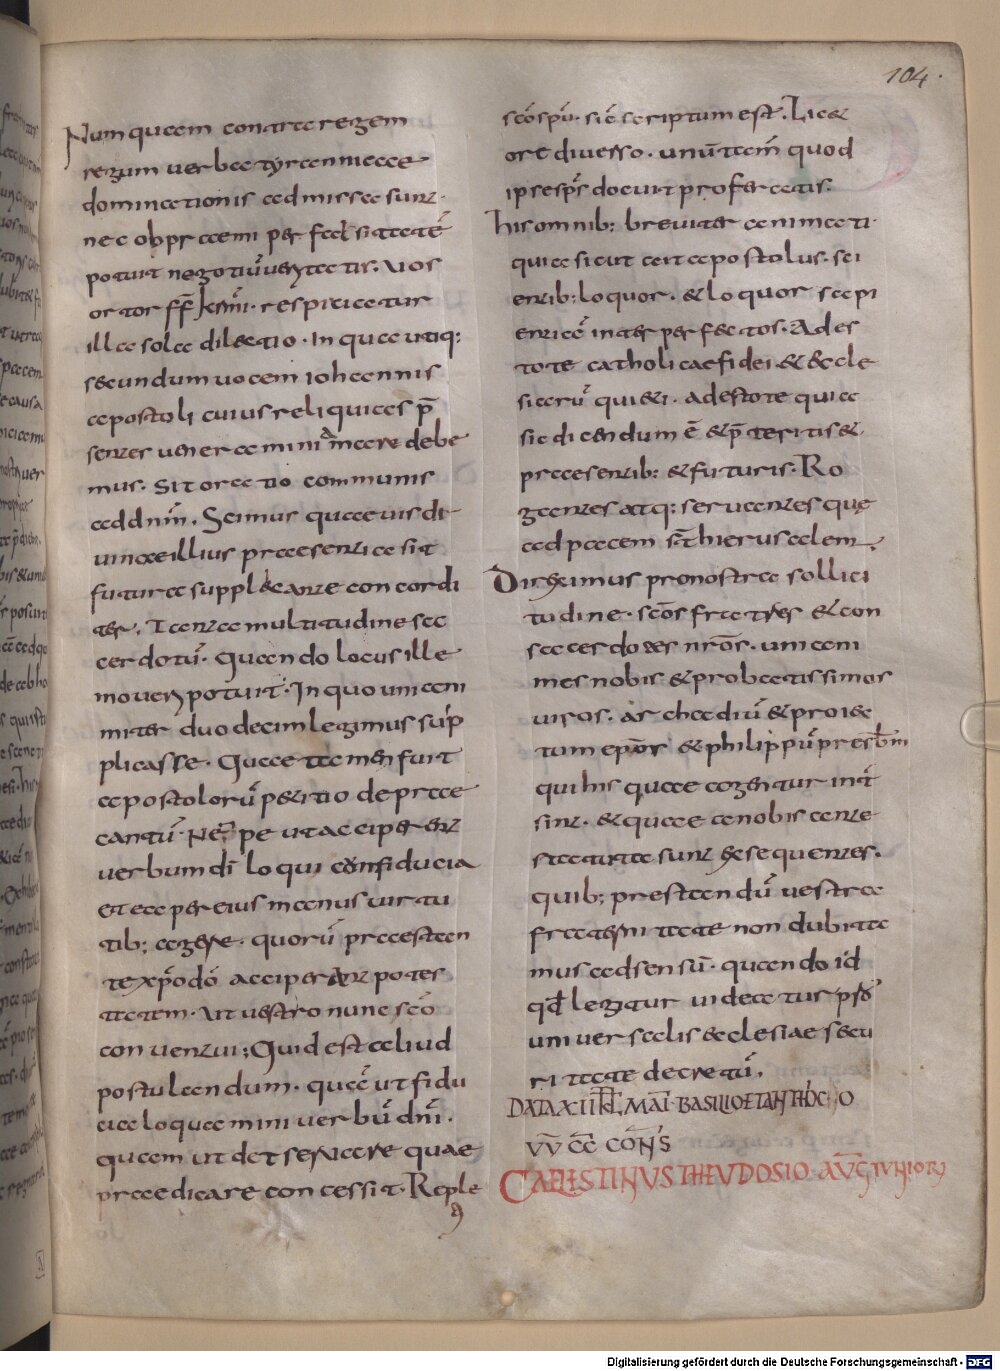 104.
Numquam contra regem
regum uerba tyrannicae
dominationis admissa sunt.
nec obpraemi per falsitatē
potuit negotiū ueritatis. Uos
ortor ff̄ kr̄mi. respiciatur
illa sola dilectio. In qua utiq;
secundum uocem iohannis
apostoli cuius reliquias p̄
sentes ueneramini manere debe
mus. Sit oratio communis
ad dn̄m. Scimus quae uis di
uinae illius praesentia sit
futura supplicante concordi
ter. Tanta multitudine sa
cerdotū. Quando locus ille
moueri potuit. In quo unani
miter duodecim legimus sup
plicasse. Quae tamen fuit
apostolorū petitio depraे
cantū. Nēpe ut acciperent
uerbum dī loqui confiducia
et eaे per eius manus uirtu
tib; agere. quorū praestan
te xp̄o dō acciperent potes
tatem. Ut uestro nunc scō
conuentui; Quid est aliud
postulandum. quā ut fidu
cia loquamini uerbū dn̄i.
quam ut det seruare quae
praedicare concessit. Reple
ti
scō spū. sic̄ scriptum est. Licet
ore diuerso. unū tam̄ quod
ipse sp̄s docuit proferatis.
his omnib; breuiter animati
quia sicut ait apostolus. sci
entib; loquor. et loquor sapi
entiā inter perfectos. Ades
tote catholicae fidei et eccle
siarū quieti. Adestote quia
sic dicendum ē et p̄teritis et
praesentib; et futuris. Ro
gantes atq; seruantes quę
ad pacem sūt hierusalem.
Direximus pro nostra sollici
tudine. scōs fratres et con
sacerdotes nr̄os. unani
mes nobis et probatissimos
uiros. archadiū et proiec
tum ep̄os et philippū presbm̄
qui his quae agentur inter
sint. et quae a nobis ante
statuta sunt exsequentes.
quib; prestandū uestra
fraternitate non dubita
mus adsensū. quando id
qd̄ legatur uideatur pro
uniuersalis ecclesiae secu
ritate decretū.
DATA XII KL MAI BASILIO ET ANTHIOCHO
VV CC CONS
CAELESTINUS THEUDOSIO AUG IUNIORI
Digitalisierung gefördert durch die Deutsche Forschungsgemeinschaft - DFG